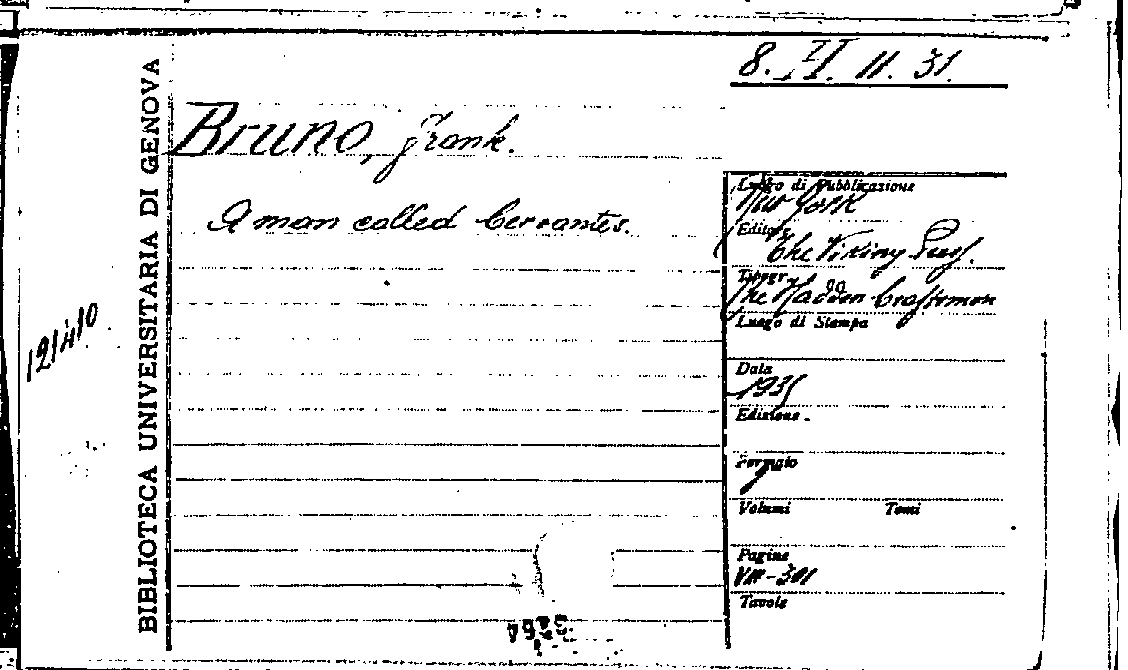 8. II. 11. 31.
BIBLIOTECA UNIVERSITARIA DI GENOVA
Bruno, Frank.
A man called Cervantes.
Luogo di Pubblicazione
New York
Editore
The Viking Press.
Tipogr.
The Haddon Craftsmen
Luogo di Stampa
Data
1935
Edizione
Formato
Volumi Tomi
Pagine
VIII-301
Tavole
121410